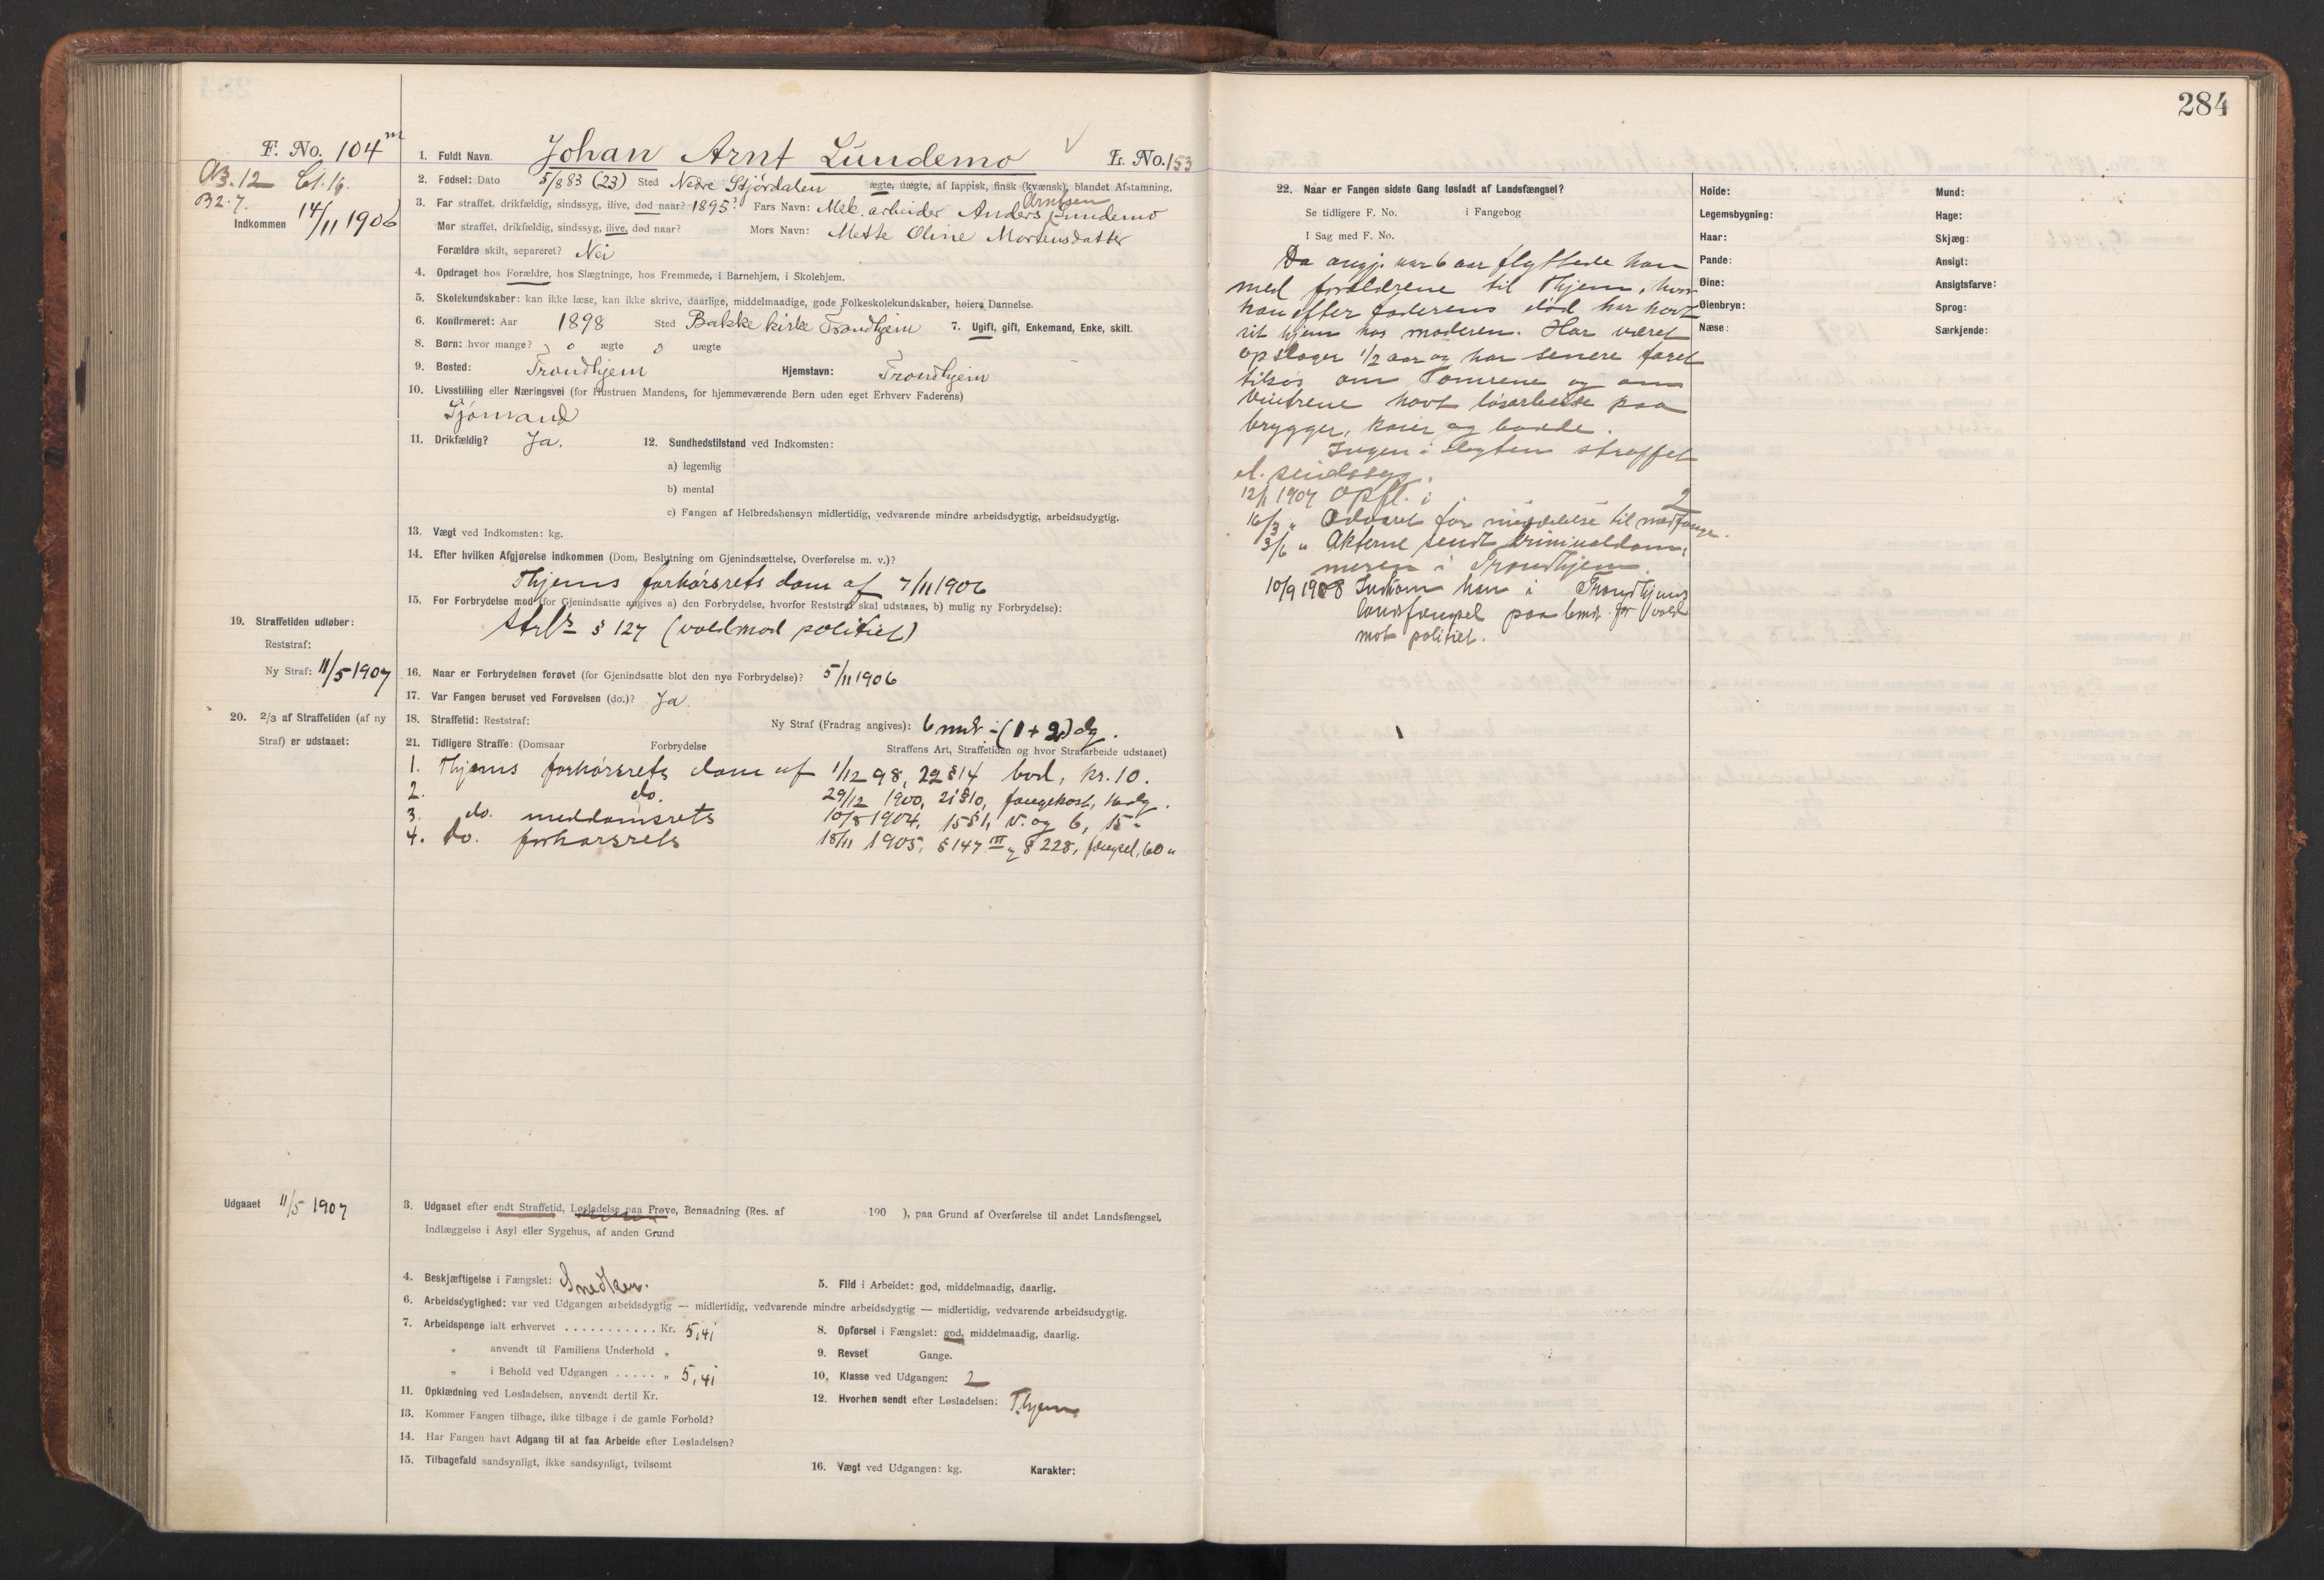 F. No. 104 m
A3.12 Cl. 16.
B2.7.
Indkommen 14/11 1906
1. Fuldt Navn. Johan Arnt Lundemo L. No. 153
2. Fødsel: Dato 5/8 83 (23) Sted Nedre Stjørdalen ægte, uægte, af lappisk, finsk (kvænsk), blandet Afstamning.
3. Far straffet, drikfældig, sindssyg, ilive, død naar? 1895? Fars Navn: Mek. arbeider Anders Arntsen Lundemo
Mor straffet, drikfældig, sindssyg, ilive, død naar? Mors Navn: Mette Oline Mortensdatter
Forældre skilt, separeret? Nei
4. Opdraget hos Forældre, hos Slægtninge, hos Fremmede, i Barnehjem, i Skolehjem.
5. Skolekundskaber: kan ikke læse, kan ikke skrive, daarlige, middelmaadige, gode Folkeskolekundskaber, høiere Dannelse.
6. Konfirmeret: Aar 1898 Sted Bakke kirke Trondhjem 7. Ugift, gift, Enkemand, Enke, skilt.
8. Børn: hvor mange? 0 ægte 0 uægte
9. Bosted: Trondhjem Hjemstavn: Trondhjem
10. Livsstilling eller Næringsvei (for Hustruen Mandens, for hjemmeværende Børn uden eget Erhverv Faderens)
Sjømand
11. Drikfældig? Ja. 12. Sundhedstilstand ved Indkomsten:
a) legemlig
b) mental
c) Fangen af Helbredshensyn midlertidig, vedvarende mindre arbeidsdygtig, arbeidsudygtig.
13. Vægt ved Indkomsten: kg.
14. Efter hvilken Afgjørelse indkommen (Dom, Beslutning om Gjenindsættelse, Overførelse m. v.)?
Thjems forhørsrets dom af 7/11 1906
15. For Forbrydelse mod (for Gjenindsatte angives a) den Forbrydelse, hvorfor Reststraf skal udstaaes, b) mulig ny Forbrydelse):
§ 127 (vold mod politiet)
19. Straffetiden udløber:
Reststraf:
Ny Straf: 11/5 1907
16. Naar er Forbrydelsen forøvet (for Gjenindsatte blot den nye Forbrydelse)? 5/11 1906
17. Var Fangen beruset ved Forøvelsen (do.)? Ja.
20. 2/3 af Straffetiden (af ny
Straf) er udstaaet:
18. Straffetid: Reststraf: Ny Straf (Fradrag angives): 6 mdr ÷ (1+2) dg.
21. Tidligere Straffe: (Domsaar Forbrydelse Straffens Art, Straffetiden og hvor Strafarbeide udstaaet)
1. Thjems forhørsrets dom af 1/12 98, 22 § 14 bod, kr. 10.
2. do. 29/12 1900, 21 § 10, fangekost, 16 dg.
3. do. meddomsrets 10/8 1904, 15 § 1, 5. og 6, 15 -
4. do. forhørsrets 18/11 1905, § 147 III, § 228, fængsel, 60 "
Udgaaet 11/5 1907
3. Udgaaet efter endt Straffetid, Løsladelse paa Prøve, Benaadning (Res. af 190 ), paa Grund af Overførelse til andet Landsfængsel.
Indlæggelse i Asyl eller Sygehus, af anden Grund
4. Beskjæftigelse i Fængslet: Snedker. 5. Flid i Arbeidet: god, middelmaadig, daarlig.
6. Arbeidsdygtighed: var ved Udgangen arbeidsdygtig — midlertidig, vedvarende mindre arbeidsdygtig — midlertidig, vedvarende arbeidsudygtig.
7. Arbeidspenge ialt erhvervet . . . . . . . . . . . Kr. 5,41 8. Opførsel i Fængslet: god, middelmaadig, daarlig.
" anvendt til Familiens Underhold " 9. Revset Gange.
" i Behold ved Udgangen . . . . . " 5,41 10. Klasse ved Udgangen: 2
11. Opklædning ved Løsladelsen, anvendt dertil Kr. 12. Hvorhen sendt efter Løsladelsen: Thjem
13. Kommer Fangen tilbage, ikke tilbage i de gamle Forhold?
14. Har Fangen havt Adgang til at faa Arbeide efter Løsladelsen?
15. Tilbagefald sandsynligt, ikke sandsynligt, tvilsomt 16. Vægt ved Udgangen: kg. Karakter:
284
22. Naar er Fangen sidste Gang løsladt af Landsfængsel?
Se tidligere F. No. i Fangebog
I Sag med F. No.
Da angj. var 6 aar flyttede han
med forældrene til Thjem, hvor
han efter faderens død har havt
sit hjem hos moderen. Har været
opslager 1/2 aar og har senere faret
tilsøs om somrene og om
vintrene havt løsarbeide paa
brygger, kaier og baade.
Ingen i slegten straffet
el. sindssyg.
12/1 1907 Opfl. i 2
16/3 " Advaret for meddelelse til medfange.
3/6 " Akterne sendt kriminaldom-
meren i Trondhjem.
10/9 1908 Indkom han i Trondhjems
landsfængsel paa 6 mdr. for vold
mot politiet.
Høide:
Legemsbygning:
Haar:
Pande:
Øine:
Øienbryn:
Næse:
Mund:
Hage:
Skjæg:
Ansigt:
Ansigtsfarve:
Sprog:
Særkjende: